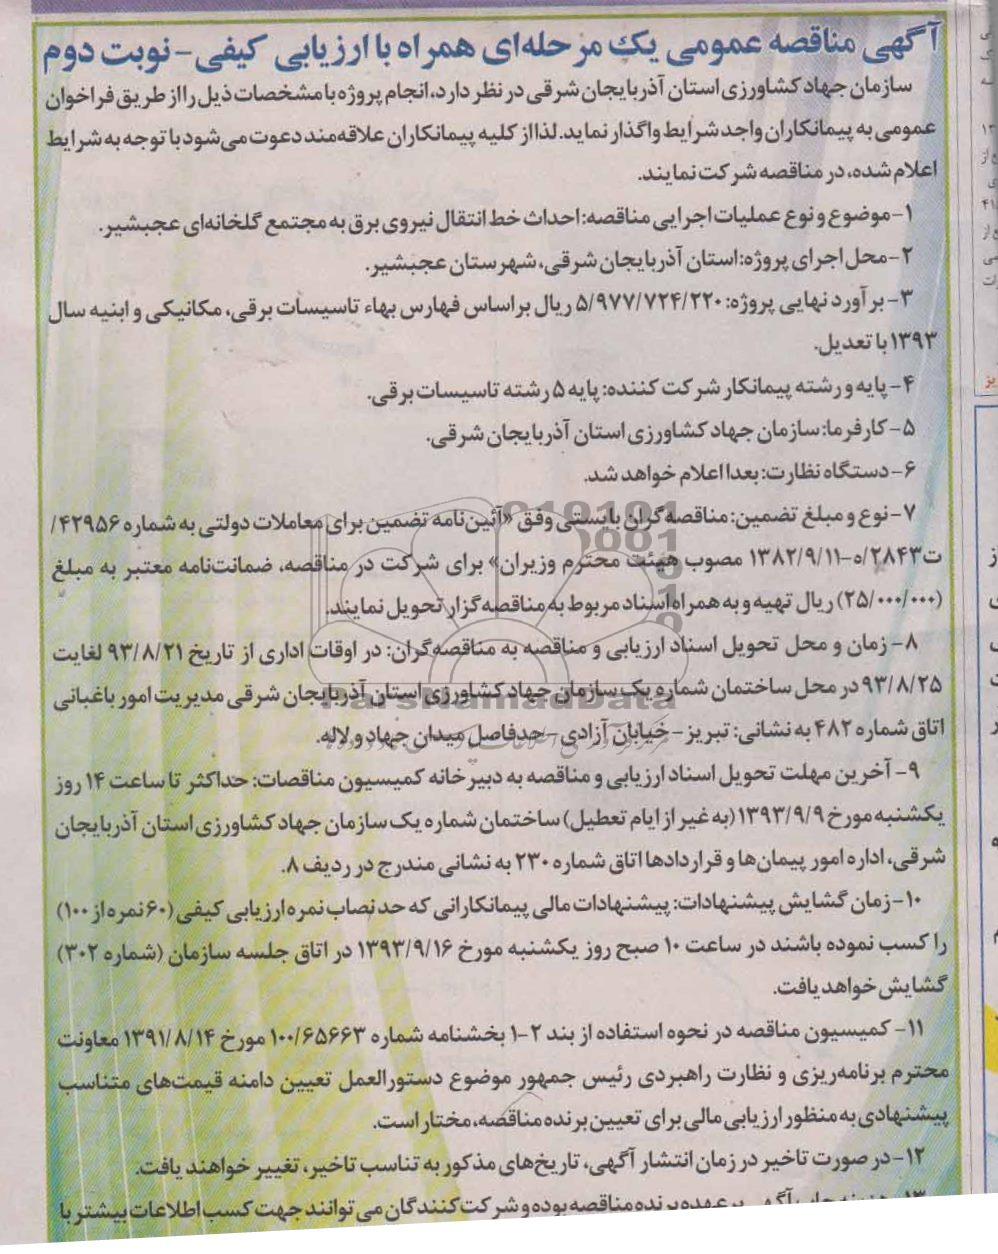 آگهی مناقصه عمومی یک مرحله‌ای همراه با ارزیابی کیفی - نوبت دوم
سازمان جهاد کشاورزی استان آذربایجان شرقی در نظر دارد، انجام پروژه با مشخصات ذیل را از طریق فراخوان
عمومی به پیمانکاران واجد شرایط واگذار نماید. لذا از کلیه پیمانکاران علاقه‌مند دعوت می‌شود با توجه به شرایط
اعلام شده، در مناقصه شرکت نمایند.
۱- موضوع و نوع عملیات اجرایی مناقصه: احداث خط انتقال نیروی برق به مجتمع گلخانه‌ای عجبشیر.
۲- محل اجرای پروژه: استان آذربایجان شرقی، شهرستان عجبشیر.
۳- برآورد نهایی پروژه: ۵/۹۷۷/۷۲۴/۲۲۰ ریال براساس فهارس بهاء تاسیسات برقی، مکانیکی و ابنیه سال
۱۳۹۳ با تعدیل.
۴- پایه و رشته پیمانکار شرکت کننده: پایه ۵ رشته تاسیسات برقی.
۵- کارفرما: سازمان جهاد کشاورزی استان آذربایجان شرقی.
۶- دستگاه نظارت: بعدا اعلام خواهد شد.
۷- نوع و مبلغ تضمین: مناقصه‌گران بایستی وفق «آئین‌نامه تضمین برای معاملات دولتی به شماره ۴۲۹۵۶/
ت۲۸۴۳/ه-۱۳۸۲/۹/۱۱ مصوب هیئت محترم وزیران» برای شرکت در مناقصه، ضمانت‌نامه معتبر به مبلغ
(۲۵/۰۰۰/۰۰۰) ریال تهیه و به همراه اسناد مربوط به مناقصه‌گزار تحویل نمایند.
۸- زمان و محل تحویل اسناد ارزیابی و مناقصه به مناقصه‌گران: در اوقات اداری از تاریخ ۹۳/۸/۲۱ لغایت
۹۳/۸/۲۵ در محل ساختمان شماره یک سازمان جهاد کشاورزی استان آذربایجان شرقی مدیریت امور باغبانی
اتاق شماره ۴۸۲ به نشانی: تبریز - خیابان آزادی - حدفاصل میدان جهاد و لاله.
۹- آخرین مهلت تحویل اسناد ارزیابی و مناقصه به دبیرخانه کمیسیون مناقصات: حداکثر تا ساعت ۱۴ روز
یکشنبه مورخ ۱۳۹۳/۹/۹ (به غیر از ایام تعطیل) ساختمان شماره یک سازمان جهاد کشاورزی استان آذربایجان
شرقی، اداره امور پیمان‌ها و قراردادها اتاق شماره ۲۳۰ به نشانی مندرج در ردیف ۸.
۱۰- زمان گشایش پیشنهادات: پیشنهادات مالی پیمانکارانی که حد نصاب نمره ارزیابی کیفی (۶۰ نمره از ۱۰۰)
را کسب نموده باشند در ساعت ۱۰ صبح روز یکشنبه مورخ ۱۳۹۳/۹/۱۶ در اتاق جلسه سازمان (شماره ۳۰۲)
گشایش خواهد یافت.
۱۱- کمیسیون مناقصه در نحوه استفاده از بند ۲-۱ بخشنامه شماره ۱۰۰/۶۵۶۶۳ مورخ ۱۳۹۱/۸/۱۴ معاونت
محترم برنامه‌ریزی و نظارت راهبردی رئیس جمهور موضوع دستورالعمل تعیین دامنه قیمت‌های متناسب
پیشنهادی به منظور ارزیابی مالی برای تعیین برنده مناقصه، مختار است.
۱۲- در صورت تاخیر در زمان انتشار آگهی، تاریخ‌های مذکور به تناسب تاخیر، تغییر خواهند یافت.
برعهده برنده مناقصه بوده و شرکت‌کنندگان می‌توانند جهت کسب اطلاعات بیشتر با
ParsNamadData